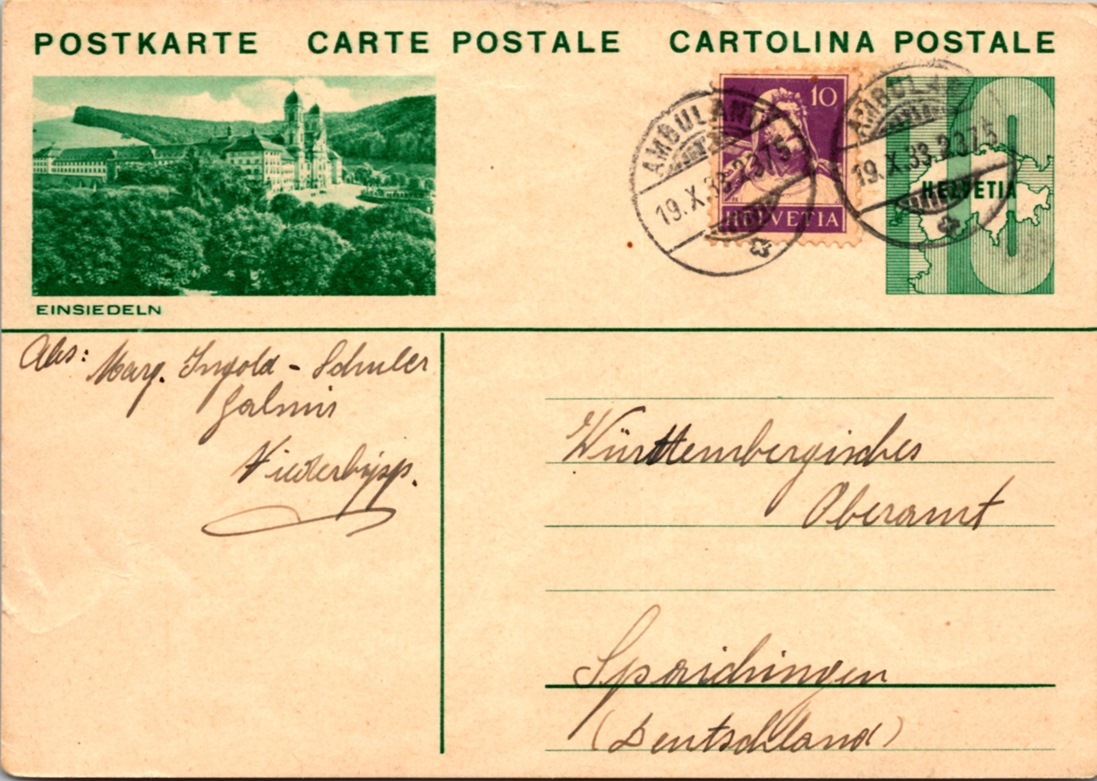 POSTKARTE CARTE POSTALE CARTOLINA POSTALE
10
HELVETIA
AMBULANT
19.X.33.2375
AMBULA
19.X.33.2375
HELVETIA
EINSIEDELN
Abs: Marg. Ingold-Schuler
Galmis
Niederbipp.
Württembergisches
Oberamt
Spaichingen
(Deutschland)